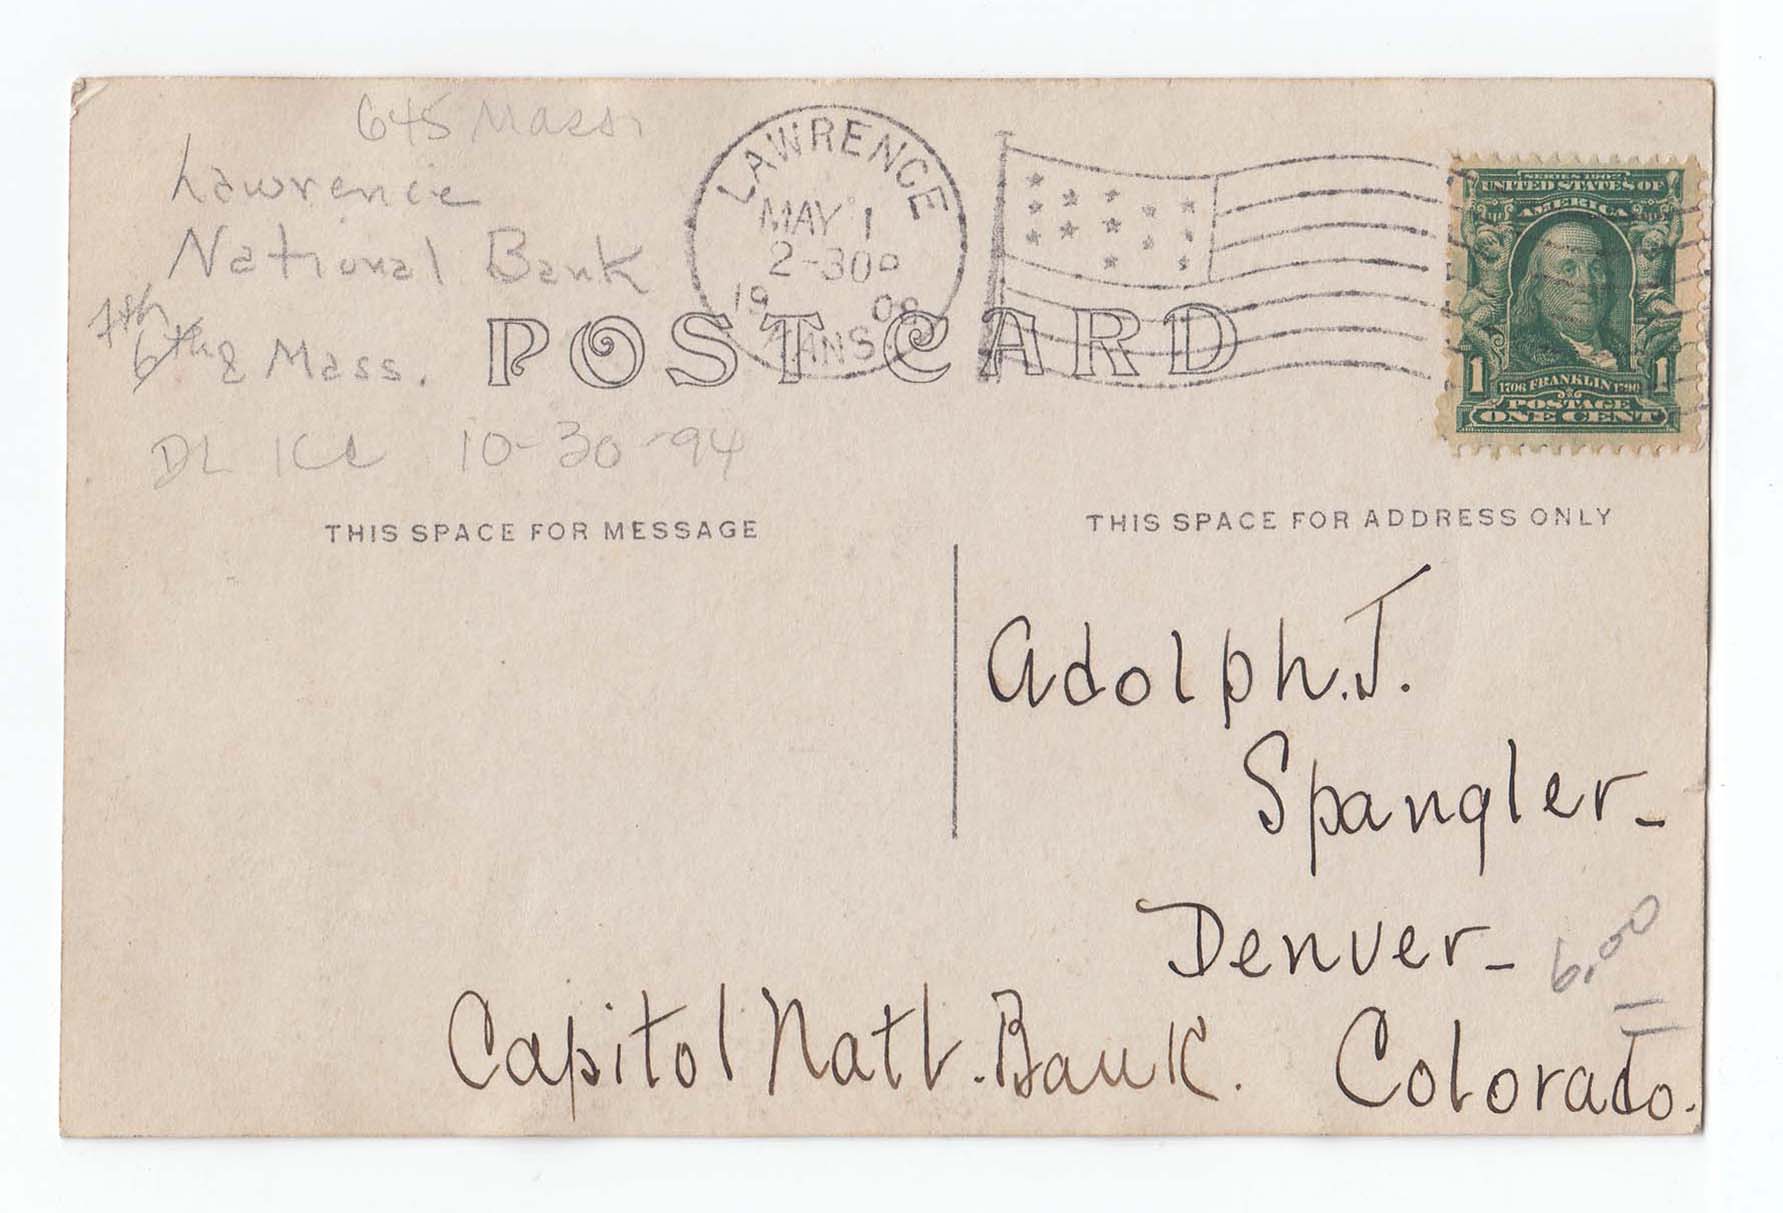 645 Mass.
Lawrence
National Bank
7th
6th & Mass.
DL KC 10-30-94
LAWRENCE
MAY 1
2-30P
1908
KANS
SERIES 1902
UNITED STATES OF
AMERICA
1 1706 FRANKLIN 1790 1
POSTAGE
ONE CENT
POST CARD
THIS SPACE FOR MESSAGE
THIS SPACE FOR ADDRESS ONLY
Adolph. J.
Spangler-
Denver-
6.00
Capitol Natl. Bank. Colorado.